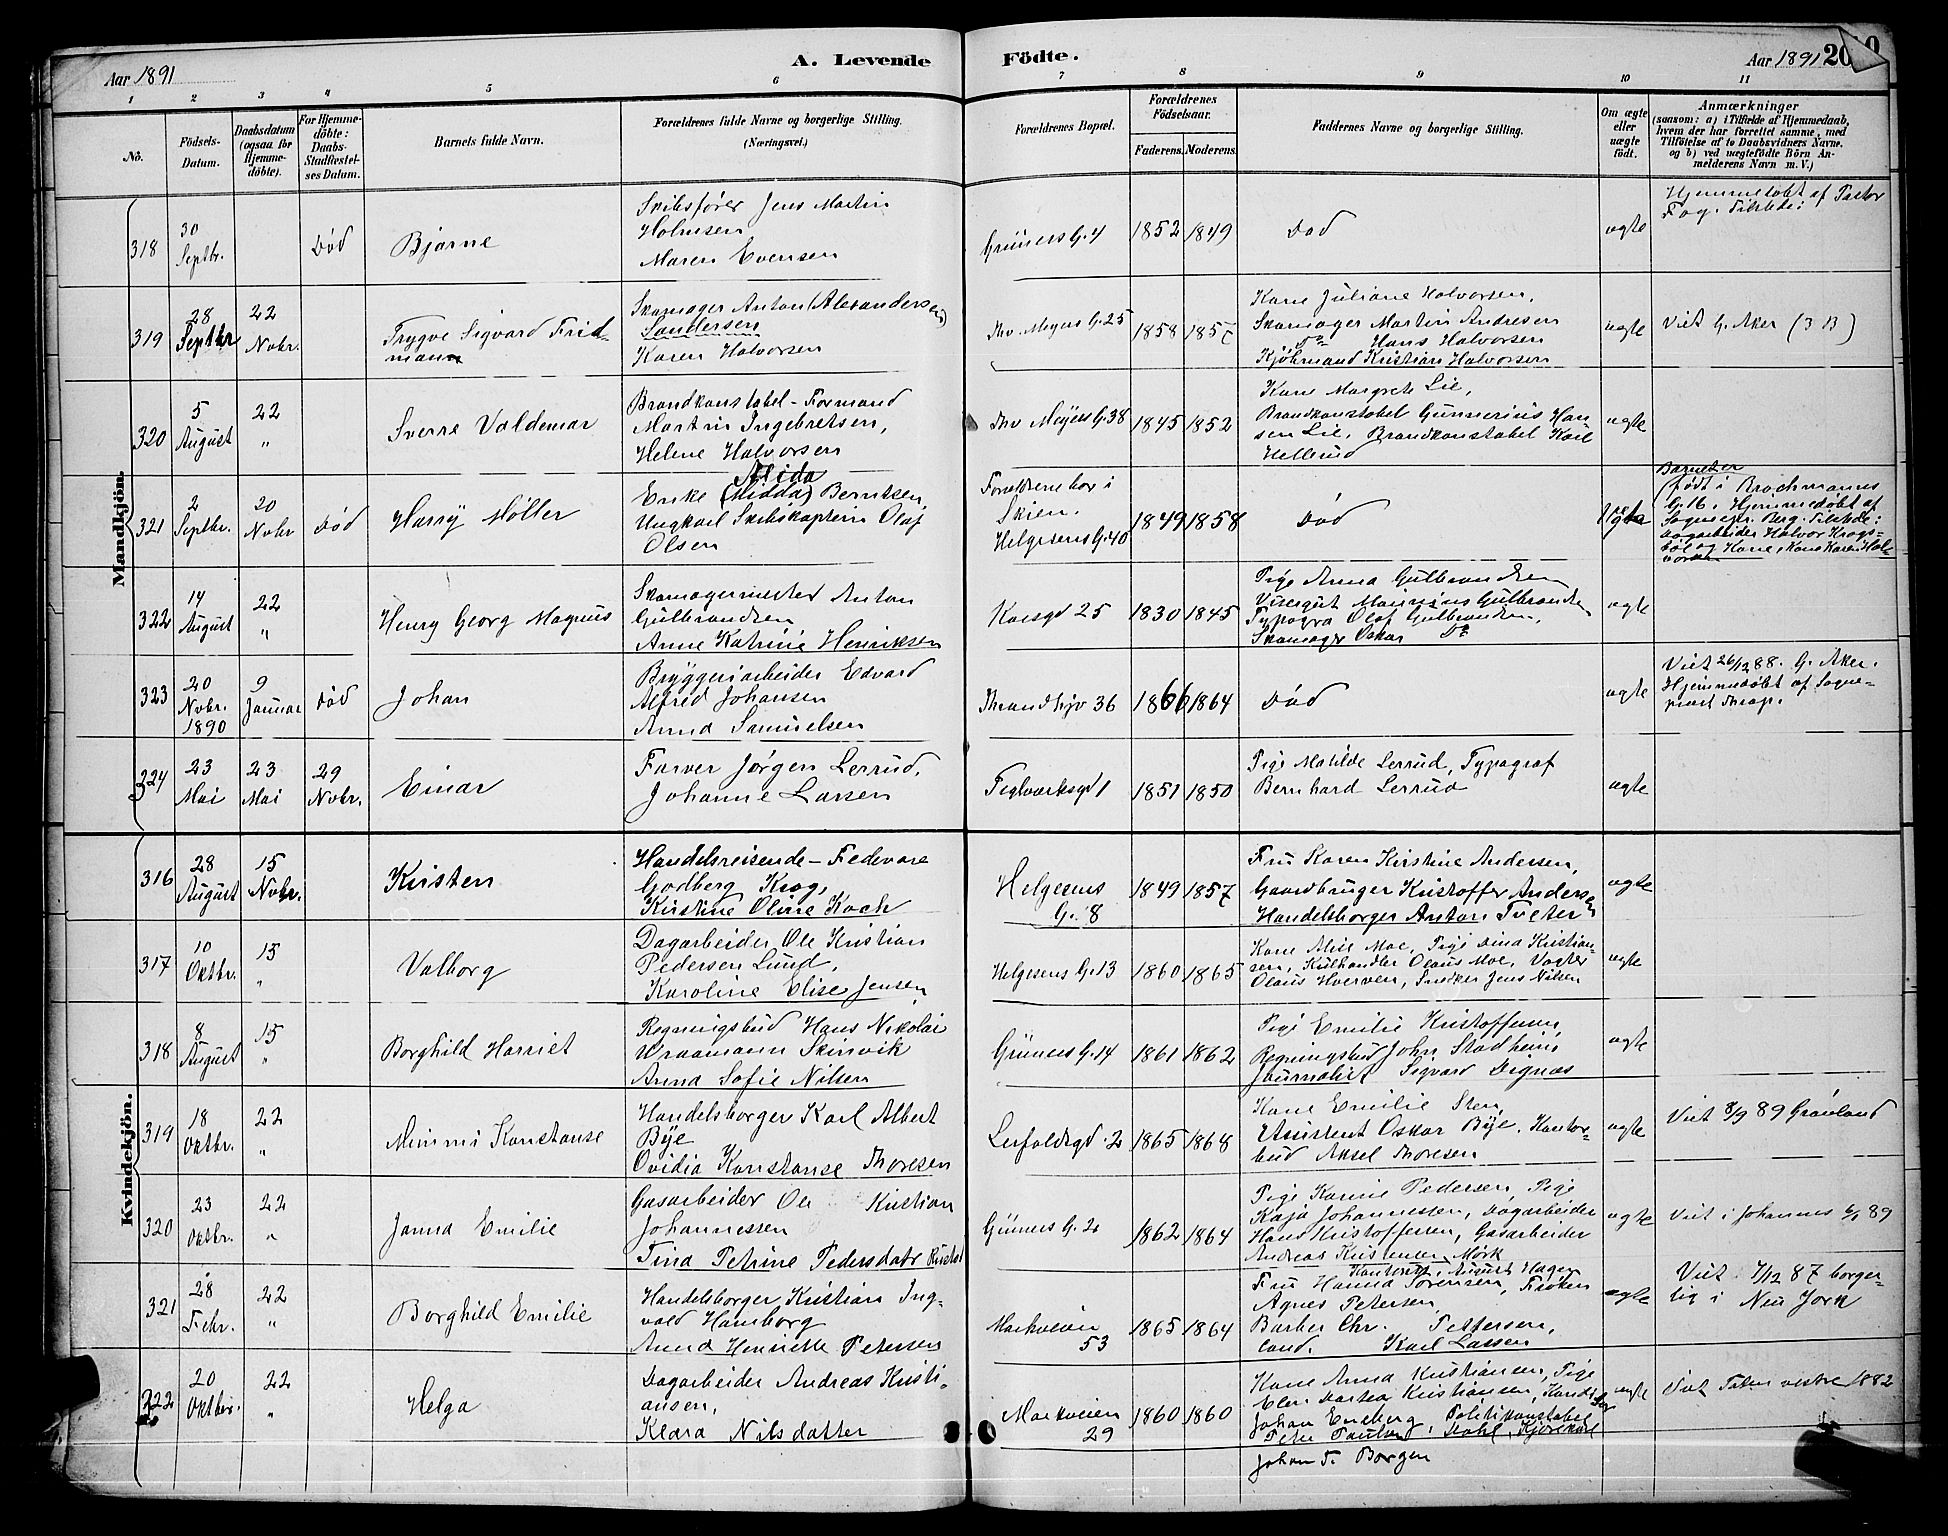 Aar 1891
A. Levende
Födte.
Aar 1891
20
1 2 3 4 5 6 7 8 9 10 11
No.
Födsels-
Datum.
Daabsdatum
(ogsaa for
Hjemme-
døbte).
For Hjemme-
døbte:
Daabs-
Stadfæstel-
ses Datum.
Barnets fulde Navn.
Forældrenes fulde Navne og borgerlige Stilling.
(Næringsvei.)
Forældrenes Bopæl.
Forældrenes
Födselsaar.
Faderens. Moderens.
Faddernes Navne og borgerlige Stilling.
Om ægte
eller
uægte
født.
Anmærkninger
(saasom: a) i Tilfælde af Hjemmedaab,
hvem der har forrettet samme, med
Tilföielse af to Daabsvidners Navne.
og b) ved uægtefödte Börn An-
melderens Navn m. V.)
Mandkjön.
318
30
Septbr.
Død
Bjarne
Skibsfører Jens Martin
Holmsen
Maren Evensen
Grüners G. 4
1852 1849
Død
ægte
Hjemmedøbt af Pastor
Fog. Tilstede:
319
28
Septbr
22
Novbr.
Trygve Sigvard Frid-
mann
Skomager Anton (Alexandersen)
Sandersen
Karen Halvorsen
Thv. Meyers G. 25
1858 1857
Kone Juliane Halvorsen,
Skomager Martin Andresen
Do Hans Halvorsen
Kjøbmand Kristian Halvorsen
ægte
Viet G. Aker (3 B)
320
5
August
22
"
Sverre Valdemar
Brandkonstabel-Formand
Martin Ingebretsen,
Helene Halvorsen
Thv Meyers G. 38
1845 1852
Kone Margrete Lie,
Brandkonstabel Gunnerius Han-
sen Lie, Brandkonstabel Karl
Hellerud
ægte
321
2
Septbr.
20
Novbr
Død
Harry Møller
Alida
Enke (Midda) Berntsen
Ungkarl Skibskaptein Olaf
Olsen
Forældrene bor i
Skien.
Helgesens G. 40
1849 1858
Død
Uægte
Barnet er
født i Brochmanns
G. 16. Hjemmedøbt af
Sognepr. Berg. Tilstede:
Dagarbeider Halvor Krogs-
bøl og Hans Kone Karen Hal-
vorsen
322
14
August
22
"
Henry Georg Magnus
Skomagermester Anton
Gulbrandsen
Anne Katrine Henriksen
Korsgd 25
1830 1845
Pige Anna Gulbrandsen
Visergut Marinius Gulbrandsen
Typogra Olaf Gulbrandsen,
Skomager Oskar Do
ægte
323
20
Novbr.
1890
9
Januar
Død
Johan
Bryggeriarbeider Edvard
Alfred Johansen
Anna Samuelsen
Thrandhjv 36
1866 1864
Død
ægte
Viet 26/12 88. G. Aker.
Hjemmedøbt af Sogne-
præst Thrap.
324
23
Mai
23
Mai
29
Novbr.
Einar
Farver Jørgen Lerrud,
Johanne Larsen
Teglverksgd 1
1851 1850
Pige Matilde Lerrud, Typograf
Bernhard Lerrud
ægte
Kvindekjön.
316
28
August
15
Novbr.
Kirsten
Handelsreisende - Fedevare
Godberg Krog,
Kirstine Oline Koch
Helgesens
G. 8
1849 1857
Fru Karen Kirstine Andersen,
Gaardbruger Kristoffer Andersen
Handelsborger Anton Tveter
ægte
317
10
Oktbr.
15
"
Valborg
Dagarbeider Ole Kristian
Pedersen Lund,
Karoline Elise Jensen
Helgesens G. 13
1860 1865
Kone Alise Moe, Pige Dina Kristian-
sen, Kulhandler Olaus Moe, Vagter
Olaus Hverven, Snedker Jens Nilsen
ægte
318
8
August
15
"
Borghild Harriet
Regningsbud Hans Nikolai
Wraamann Skinvik
Anna Sofie Nilsen
Grüners G. 14
1861 1862
Pige Emilie Kristoffersen,
Regningsbud John Stadheim
Journalist Sigvard Dignæs
ægte
319
18
Oktbr.
22
"
Mimmi Konstanse
Handelsborger Karl Albert
Bye
Ovidia Konstanse Thoresen
Leifaldsgd. 2
1865 1868
Kone Emilie Sten,
Assistent Oskar Bye, Kontor-
bud Aksel Thoresen
ægte
Viet 8/9 89 Grønland
320
23
Oktbr.
22
"
Janna Emilie
Gasarbeider Ole Kristian
Johannessen
Tina Petrine Pedersdatr
Grüners G. 2
1862 1864
Pige Karine Pedersen, Pige
Kaja Johannessen, Dagarbeider
Hans Kristoffersen, Gasarbeider
Andreas Kristensen Mørk
ægte
Viet i Johannes 89
321
28
Febr.
22
"
Borghild Emilie
Handelsborger Kristian Ing-
vald Hamborg
Anna Henriette Petersen
Markveien
53
1865 1864
Kontorist August Hagen
Fru Hanna Sørensen, Frøken
Agnes Petersen,
Barber Chr. Pettersen,
cand. Karl Larsen
ægte
Viet 7/12 87 borger-
lig i New York
322
20
Oktbr.
22
"
Helga
Dagarbeider Andreas Kristi-
ansen,
Klara Nilsdatter
Markveien
29
1860 1860
Kone Anna Kristiansen, Pige
Elen Dortea Kristiansen,
Johan Eneberg, Politikonstabel
Peter Paulsen Dahl, Kjørekarl
Johan F. Borgen
ægte
Viet vestre 1882